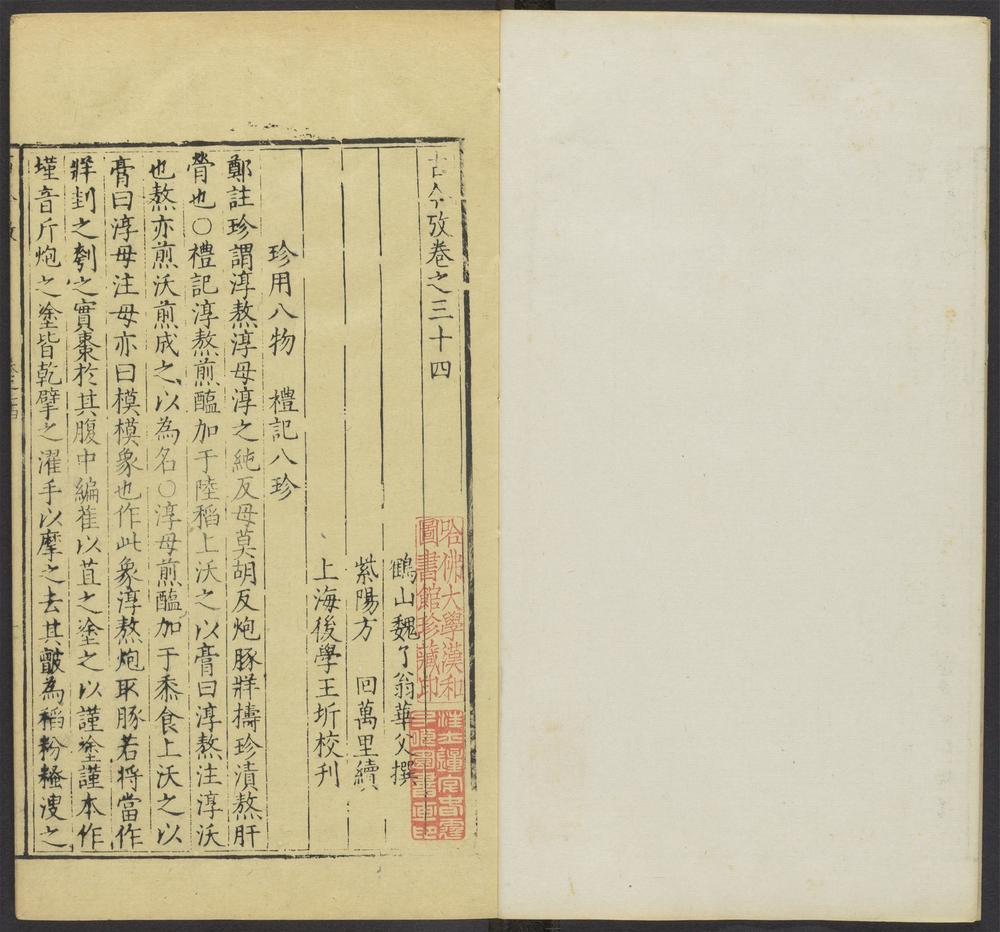 古今攷卷之三十四
鶴山魏了翁華父撰
紫陽方 回萬里續
上海後學王圻校刊
珍用八物 禮記八珍
鄭註珍謂淳熬淳母淳之純反母莫胡反炮豚牂擣珍漬熬肝
膋也○禮記淳熬煎醢加于陸稻上沃之以膏曰淳熬注淳沃
也熬亦煎沃煎成之以為名○淳母煎醢加于黍食上沃之以
膏曰淳母注母亦曰模模象也作此象淳熬炮取豚若將當作
牂刲之刳之實棗於其腹中編萑以苴之塗之以謹塗謹本作
墐音斤炮之塗皆乾擘之濯手以摩之去其皽為稻粉糔溲之
哈佛大學漢和
圖書館珍藏印